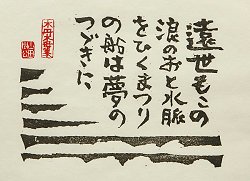 遠世もこの
浪のおと水脈
をひくまつり
の船は夢の
つづきに